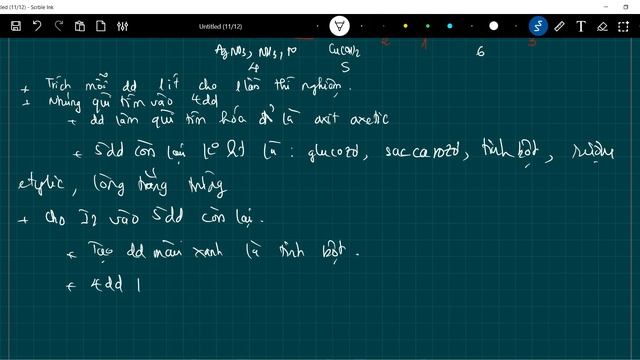 tled (11/12) - Scrble Ink
Untitled (11/12)
AgNO3, NH3, to Cu(OH)2 2 1 6 3
4 5
+ Trích mỗi dd 1 ít cho 1 lần thí nghiệm.
+ Nhúng quì tím vào 4dd
+ dd làm quì tím hóa đỏ là axit axetic
+ 5dd còn lại là: glucozơ, saccarozơ, tinh bột, rượu
etylic, lòng trắng trứng
+ cho I2 vào 5dd còn lại.
+ Tạo dd màu xanh là tinh bột.
+ 4dd l